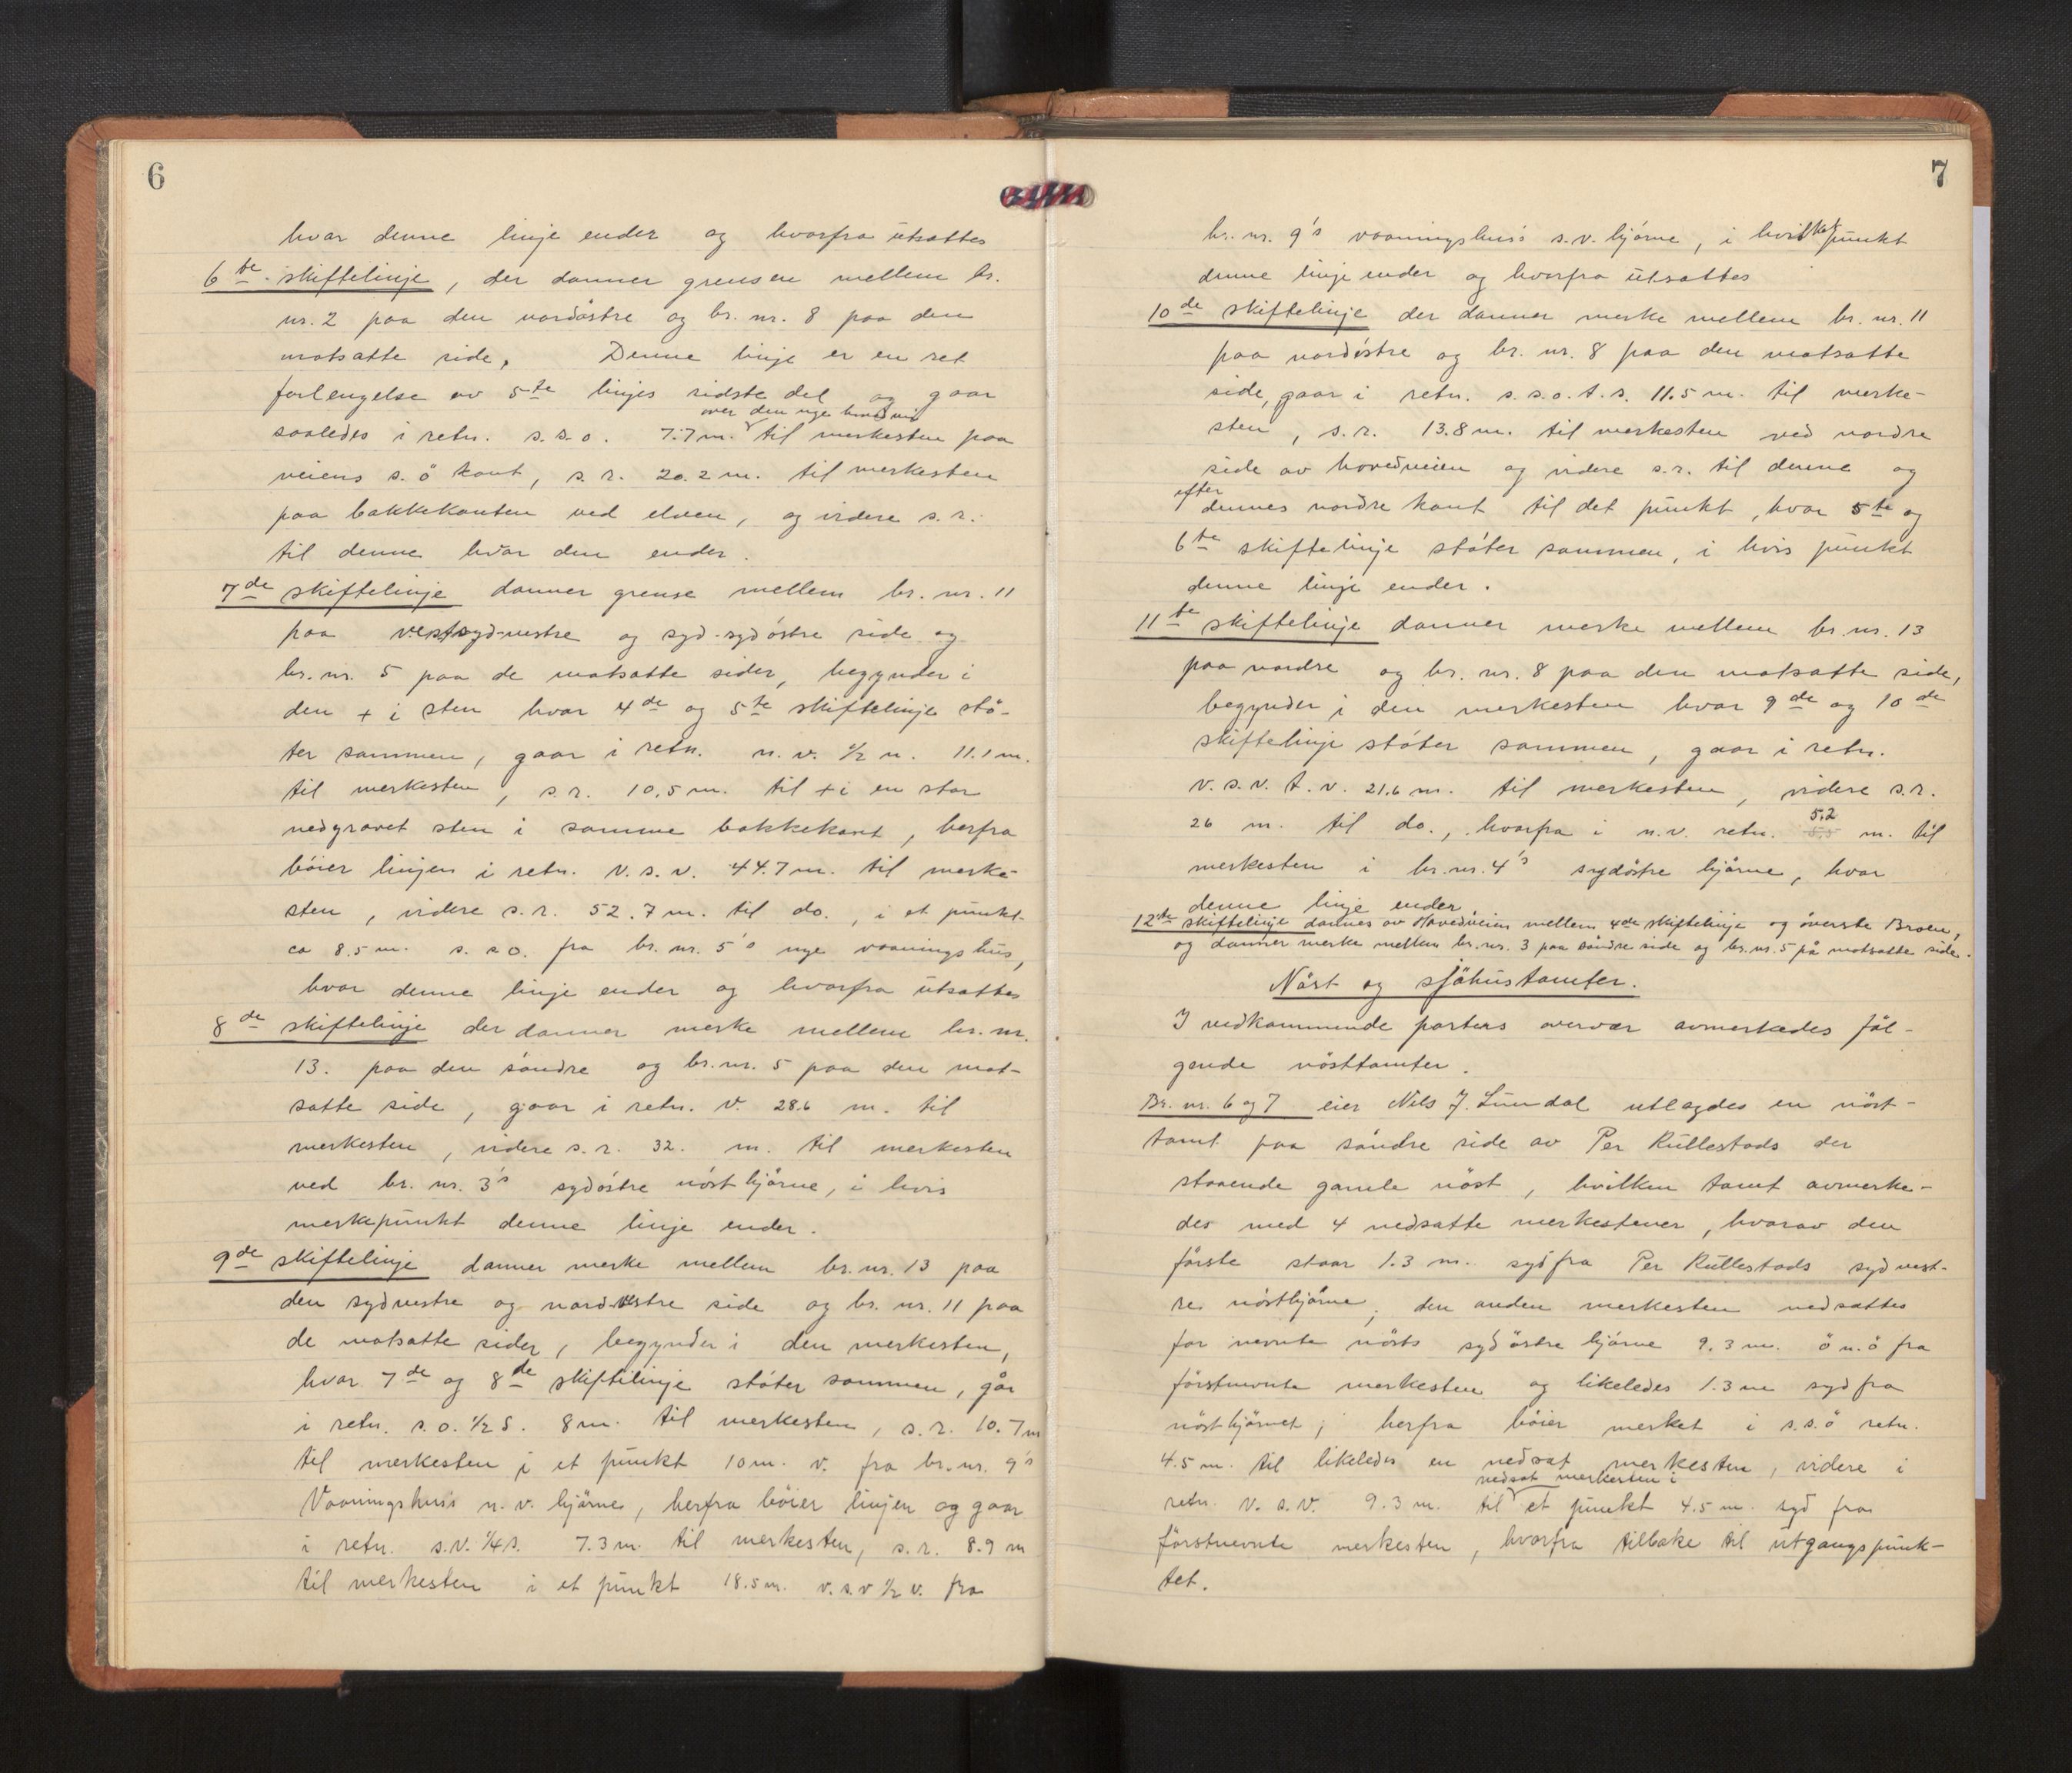 6
hvor denne linje ender og hvorfra utsattes
6te skiftelinje, der danner grensen mellem br.
nr. 2 paa den nordöstre og br. nr. 8 paa den
motsatte side. Denne linje er en ret
forlengelse av 5te linjes sidste del og gaar
over den nye hovedvei
saaledes i retn. s.s.o. 7.7 m. til merkesten paa
veiens s.ö kant, s.r. 20.2 m. til merkesten
paa bakkekanten ved elven, og videre s.r.
til denne hvor den ender.
7de skiftelinje danner grense mellem br. nr. 11
paa vestsyd-vestre og syd-sydöstre side og
br. nr. 5 paa de motsatte sider, begynder i
den + i sten hvor 4de og 5te skiftelinje stö-
ter sammen, gaar i retn. n.v. 1/2 n. 11.1 m.
til merkesten, s.r. 10.5 m. til + i en stor
nedgravet sten i samme bakkekant, herfra
böier linjen i retn. v.s.v. 44.7 m. til merke-
sten, videre s.r. 52.7 m. til do., i et punkt
ca 8.5 m. s.s.o. fra br. nr. 5's nye vaaningshus,
hvor denne linje ender og hvorfra utsattes
8de skiftelinje der danner merke mellem br. nr.
13. paa den söndre og br. nr. 5 paa den mot-
satte side, gaar i retn. v. 28.6 m. til
merkesten, videre s.r. 32. m. til merkesten
ved br. nr. 3's sydöstre nösthjörne, i hvis
merkepunkt denne linje ender.
9de skiftelinje danner merke mellem br. nr. 13 paa
den sydvestre og nordvestre side og br. nr. 11 paa
de motsatte sider, begynder i den merkesten,
hvor 7de og 8de skiftelinje stöter sammen, går
i retn. s.o. 1/2 s. 8 m. til merkesten, s.r. 10.7 m
til merkesten i et punkt 10 m. v. fra br. nr. 9's
Vaaningshus's n.v. hjörne, herfra böier linjen og gaar
i retn. s.v. 1/4 s. 7.3 m. til merkesten, s.r. 8.9 m
til merkesten i et punkt 18.5 m. v.s.v 1/2 v. fra
7
br. nr. 9's vaaningshus's s.v. hjörne, i hvilket punkt
denne linje ender og hvorfra utsattes
10de skiftelinje der danner merke mellem br. nr. 11
paa nordöstre og br. nr. 8 paa den motsatte
side, gaar i retn. s.s.o. t.s. 11.5 m. til merke-
sten, s.r. 13.8 m. til merkesten ved nordre
side av hovedveien og videre s.r. til denne og
efter dennes nordre kant til det punkt, hvor 5te og
6te skiftelinje stöter sammen, i hvis punkt
denne linje ender.
11te skiftelinje danner merke mellem br. nr. 13
paa nordre og br. nr. 8 paa den motsatte side,
begynder i den merkesten hvor 9de og 10de
skiftelinje stöter sammen, gaar i retn.
v.s.v. t.v. 21.6 m. til merkesten, videre s.r.
26 m. til do., hvorfra i n.v. retn. 5.2 m. til
merkesten i br. nr. 4's sydöstre hjörne, hvor
denne linje ender
12te skiftelinje dannes av Hovedveien mellem 4de skiftelinje og överste Broen,
og danner merke mellem br. nr. 3 paa söndre side og br. nr. 5 på motsatte side.
Nöst og sjöhustomter.
I vedkommende parters overvær avmerkedes föl-
gende nösttomter.
Br. nr. 6 og 7 eier Nils J. Lundal utlagdes en nöst-
tomt paa söndre side av Per Kullestads der
staaende gamle nöst, hvilken tomt avmerke-
des med 4 nedsatte merkestener, hvorav den
förste staar 1.3 m. syd fra Per Kullestads sydvest-
re nösthjörne, den anden merkesten nedsattes
for nevnte nösts sydöstre hjörne 9.3 m. ö n.ö fra
förstnevnte merkesten og likeledes 1.3 m syd fra
nösthjörnet; herfra böier merket i s.s.ö retn.
4.5 m. til likeledes en nedsat merkesten, videre i
nedsat merkesten i
retn. v.s.v. 9.3 m. til et punkt 4.5 m. syd fra
förstnevnte merkesten, hvorfra tilbake til utgangspunk-
tet.